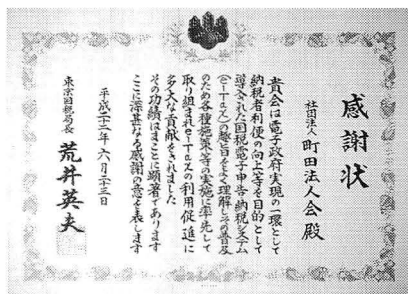 感謝状
社団法人 町田法人会 殿
貴会は電子政府実現の一環として
納税者利便の向上等を目的として
導入された国税電子申告・納税システム
(e-Tax)の趣旨をよく理解しその普及
のため各種施策等の実施に率先して
取り組まれe-Taxの利用促進に
多大な貢献をされました
その功績はまことに顕著であります
ここに深甚なる感謝の意を表します
平成二十二年六月二十三日
東京国税局長 荒井英夫